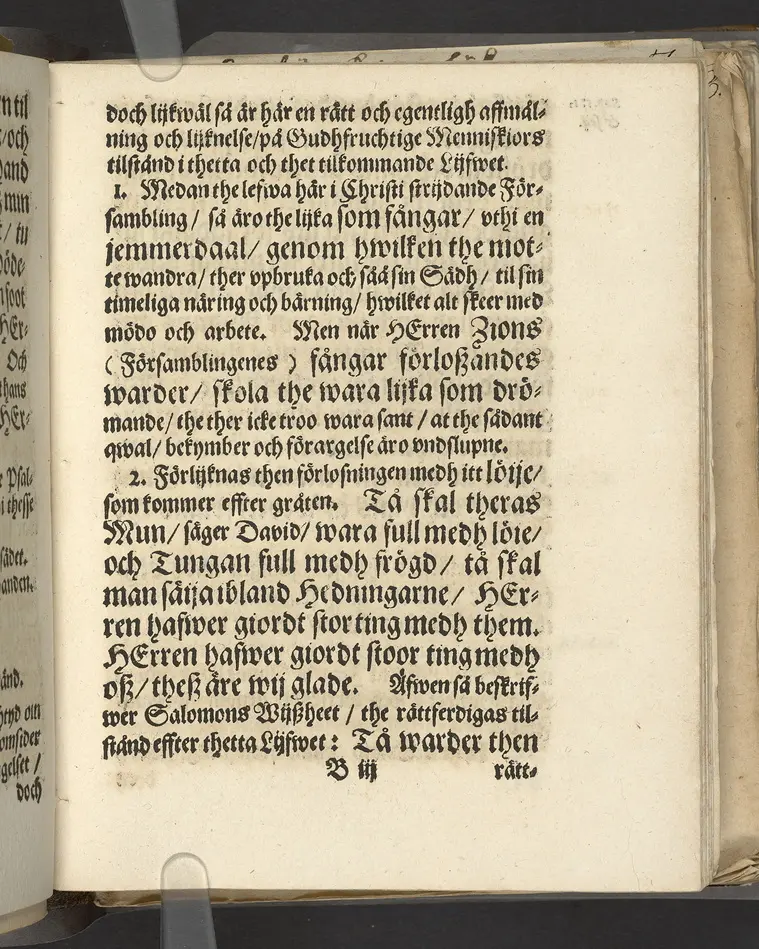 n til
/och
and
min
/ tu
döde-
nsoot
HEr-
Och
thans
HEr-
Psal-
i thesse
sädet.
anden.
änd.
htyd om
omsider
gelset /
doch
doch lijkwäl så är här en rätt och egentligh affmål-
ning och lijknelse/på Gudhfruchtige Menniskiors
tilstånd i thetta och thet tilkommande Lijfwet.
1. Medan the lefwa här i Christi strijdande För-
sambling / så äro the lijka som fångar/ vthi en
jemmerdaal/ genom hwilken the mot-
te wandra/ ther vpbruka och såå sin Sädh / til sin
timeliga näring och bärning/ hwilket alt skeer med
mödo och arbete. Men när HErren Zions
( Församblingenes ) fångar förloßandes
warder/ skola the wara lijka som drö-
mande/ the ther icke troo wara sant / at the sådant
qwal/ bekymber och förargelse äro vndslupne.
2. Förlijknas then förlosningen medh itt löije/
som kommer effter gråten. Tå skal theras
Mun/ säger David/ wara full medh löie/
och Tungan full medh frögd/ tå skal
man säija ibland Hedningarne/ HEr-
ren hafwer giordt stor ting medh them.
HErren hafwer giordt stoor ting medh
oß/ theß äre wij glade. Äfwen så beskrif-
wer Salomons Wijßheet / the rättferdigas til-
stånd effter thetta Lijfwet: Tå warder then
B iij rätt-